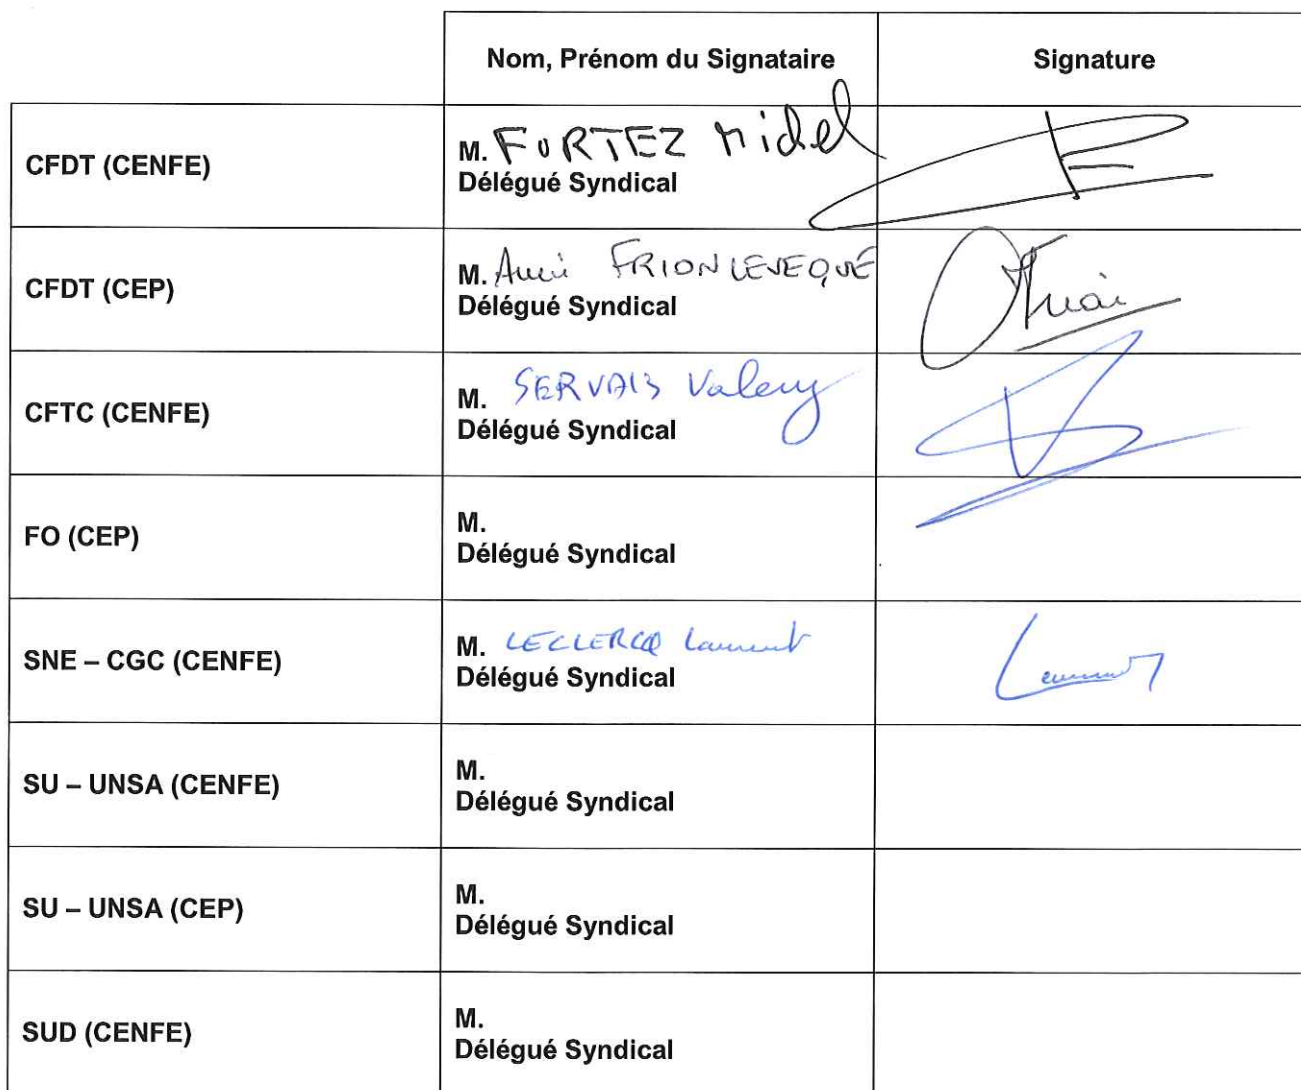 Nom, Prénom du Signataire Signature
CFDT (CENFE)
M. FURTEZ Michel
Délégué Syndical
CFDT (CEP)
M. FRION LEVEQUE
Délégué Syndical
CFTC (CENFE)
M. SERVAIS Valery
Délégué Syndical
FO (CEP)
M.
Délégué Syndical
SNE – CGC (CENFE)
M. LECLERCQ Laurent
Délégué Syndical
SU – UNSA (CENFE)
M.
Délégué Syndical
SU – UNSA (CEP)
M.
Délégué Syndical
SUD (CENFE)
M.
Délégué Syndical